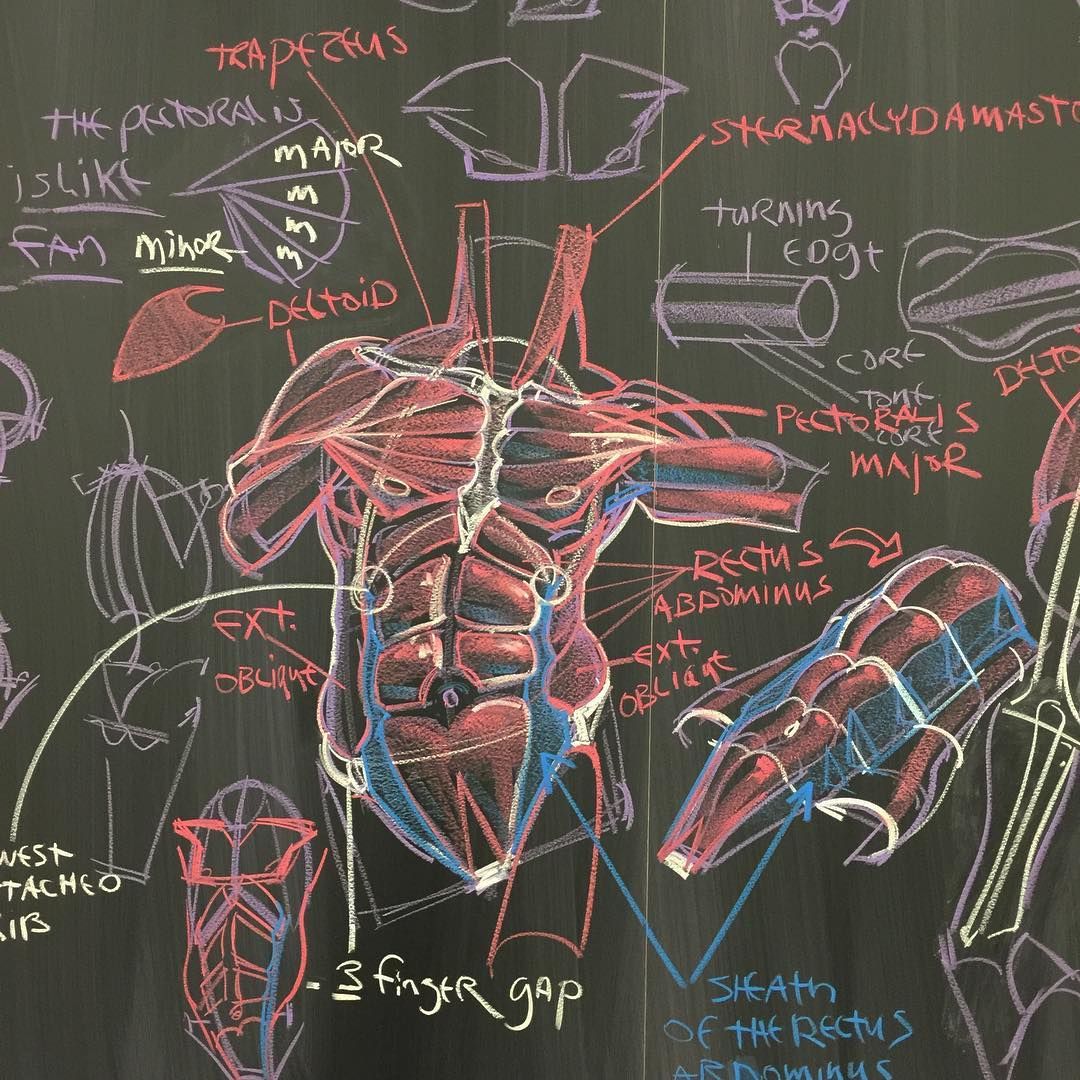 TRAPEZEUS
THE PECTORALIS
ISLIKE
FAN
MAJOR
m
m
m
minor
DELTOID
STERNACLYDAMASTO
turning
EDGE
CORE
TONE
CORE
DELTO
PECTORALIS
MAJOR
RECTUS
ABDOMINUS
EXT.
OBLIQUE
EXT.
OBLIQUE
WEST
TACHED
RIB
- 3 finger gap
SHEATH
OF THE RECTUS
ABDOMINUS